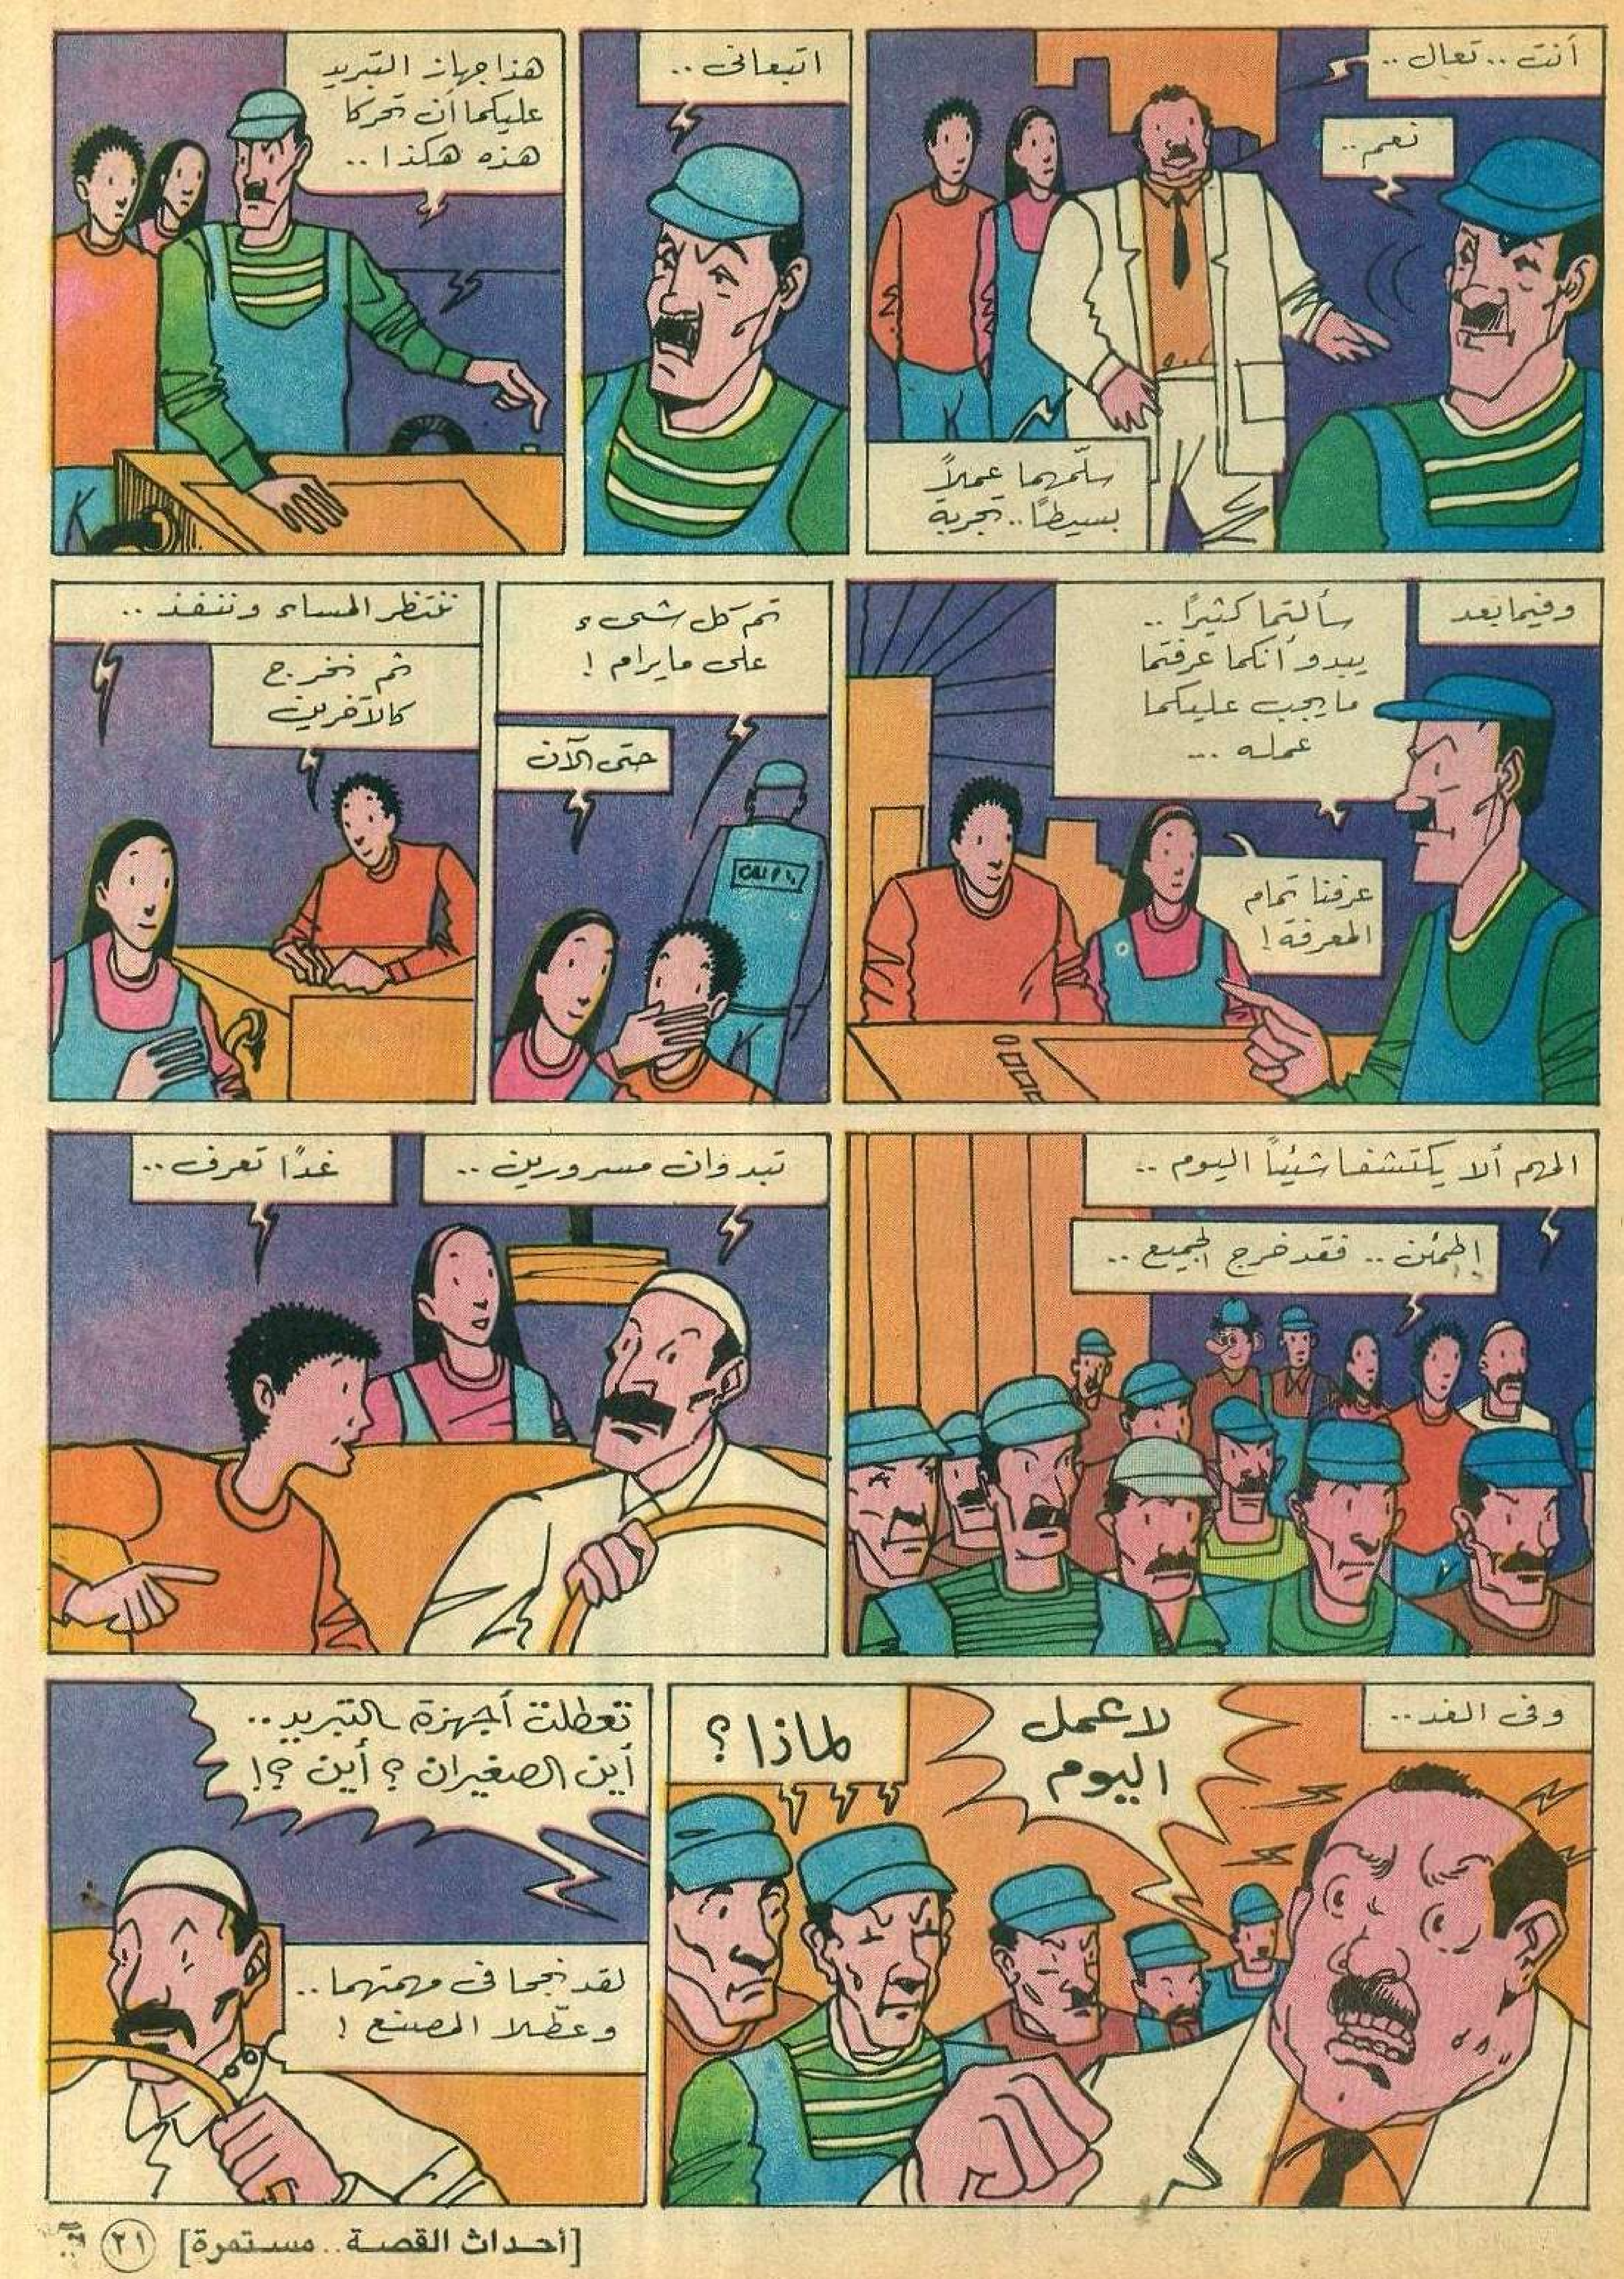 أنت .. تعال ..
نعم ..
سلّمهما عملاً
بسيطًا .. تجربة
اتبعانى ..
هذا جهاز التبريد
عليكما أن تحركا
هذه هكذا ..
وفيما بعد
سألتما كثيرًا ..
يبدو أنكما عرفتما
ما يجب عليكما
عمله ...
عرفنا تمام
المعرفة !
تم كل شىء
على ما يرام !
حتى الآن
ننتظر المساء وننفذ ..
ثم نخرج
كالآخرين
المهم ألا يكتشفا شيئاً اليوم ..
اطمئن .. فقد خرج الجميع ..
تبدوان مسرورين ..
غدًا تعرف ..
وفى الغد ..
لا عمل
اليوم
لماذا ؟
تعطلت أجهزة التبريد ..
أين الصغيران ؟ أين ؟!
لقد نجحا فى مهمتهما ..
وعطّلا المصنع !
[أحداث القصة .. مستمرة]
٢١